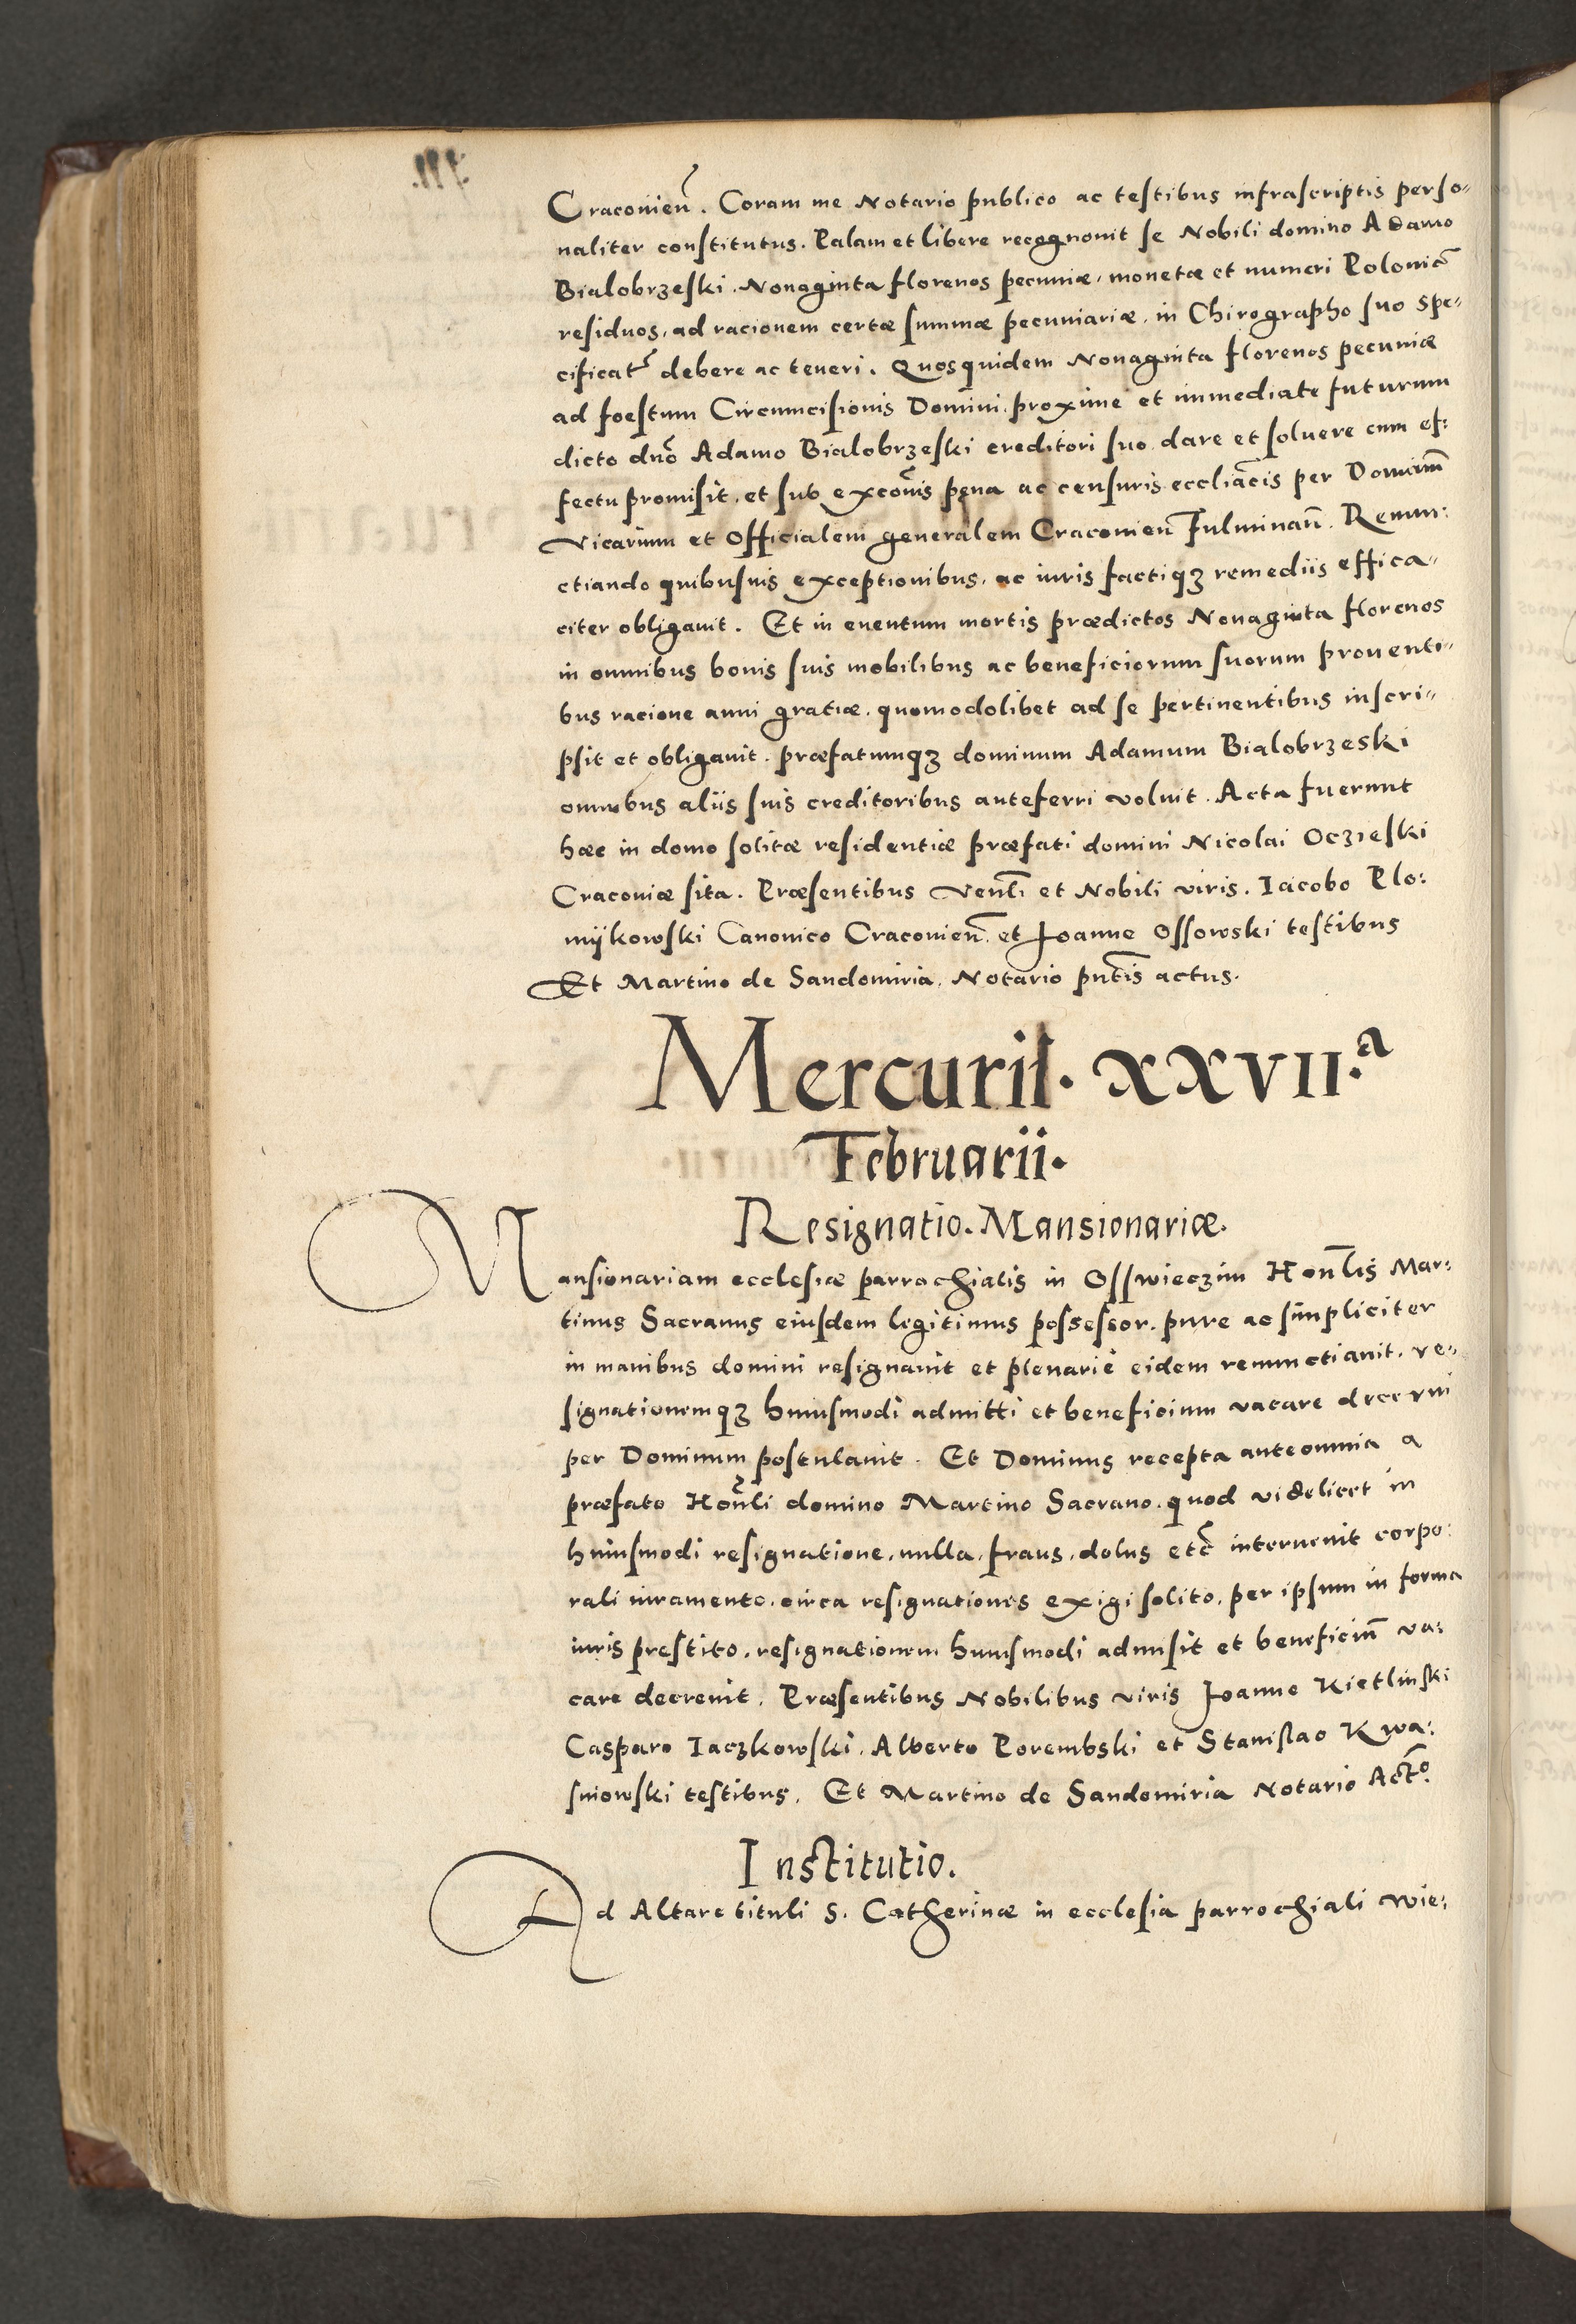 Craconień. Coram me Notario publico ac testibus infrascriptis perso-
naliter constitutus. Palam et libere recognouit se Nobili domino Adamo
Bialobrzeski. Nonaginta florenos pecuniæ, monetæ et numeri Polonic̃
residuos, ad racionem certæ summæ pecuniariæ, in Chirographo suo spe-
cificat̃ debere ac teneri. Quosquidem Nonaginta florenos pecuniæ
ad foestum Circumcisionis Domini, proxime et immediate futurum
dicto dño Adamo Bialobrzeski creditori suo dare et soluere cum ef:
fectu promisit, et sub excõis pęna ac censuris eccliãcis per Dominũ
Vicarium et Officialem generalem Craconień fulminań. Renun:
ctiando quibusuis exceptionibus, ac iuris factiqꝫ remediis effica-
citer obligauit. Et in euentum mortis prædictos Nonaginta florenos
in omnibus bonis suis mobilibus ac beneficiorum suorum prouenti-
bus racione anni gratiæ, quomodolibet ad se pertinentibus inscri-
psit et obligauit. præfatumqꝫ dominum Adamum Bialobrzeski
omnibus aliis suis creditoribus anteferri voluit. Acta fuerunt
hæc in domo solitæ residentiæ præfati domini Nicolai Oczieski
Craconiæ sita. Præsentibus Veñli et Nobili viris. Iacobo Plo:
mijkowski Canonico Craconień. et Joanne Ossowski testibus
Et Martino de Sandomiria, Notario pñtis actus.
Mercurii. XXVII.ª
Februarii.
Resignatio. Mansionariæ.
Mansionariam ecclesiæ parrochialis in Osswieczim Hoñlis Mar:
tinus Sacranus eiusdem legitimus possessor, pure ac simpliciter
in manibus domini resignauit et plenarie eidem renunctiauit, re-
signationemqꝫ huiusmodi admitti et beneficium vacare decerni
per Dominum postulauit. Et Dominus recepta ante omnia a
præfato Hoñli domino Martino Sacrano, quod videlicet in
huiusmodi resignatione, nulla, fraus, dolus etc̃ interuenit corpo:
rali iuramento, circa resignationes exigi solito, per ipsum in forma
iuris prestito, resignationem huiusmodi admisit et beneficiũ va:
care decreuit. Præsentibus Nobilibus viris Joanne Kietlinski
Casparo Iaczkowski, Alberto Porembski et Stanislao Kwa:
sniowski testibus. Et Martino de Sandomiria Notario Act̃o.
Institutio.
Ad Altare tituli S. Catherinæ in ecclesia parrochiali Wie: